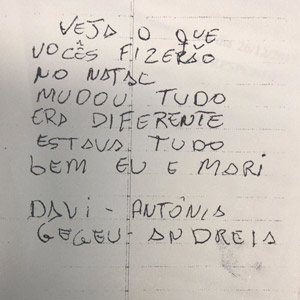 VEJA O QUE
VOCÊS FIZERÃO
NO NATAL
MUDOU TUDO
ERA DIFERENTE
ESTAVA TUDO
bEM EU E MARi
DAVi - ANTÔNIA
GEGEU - ANDREIA